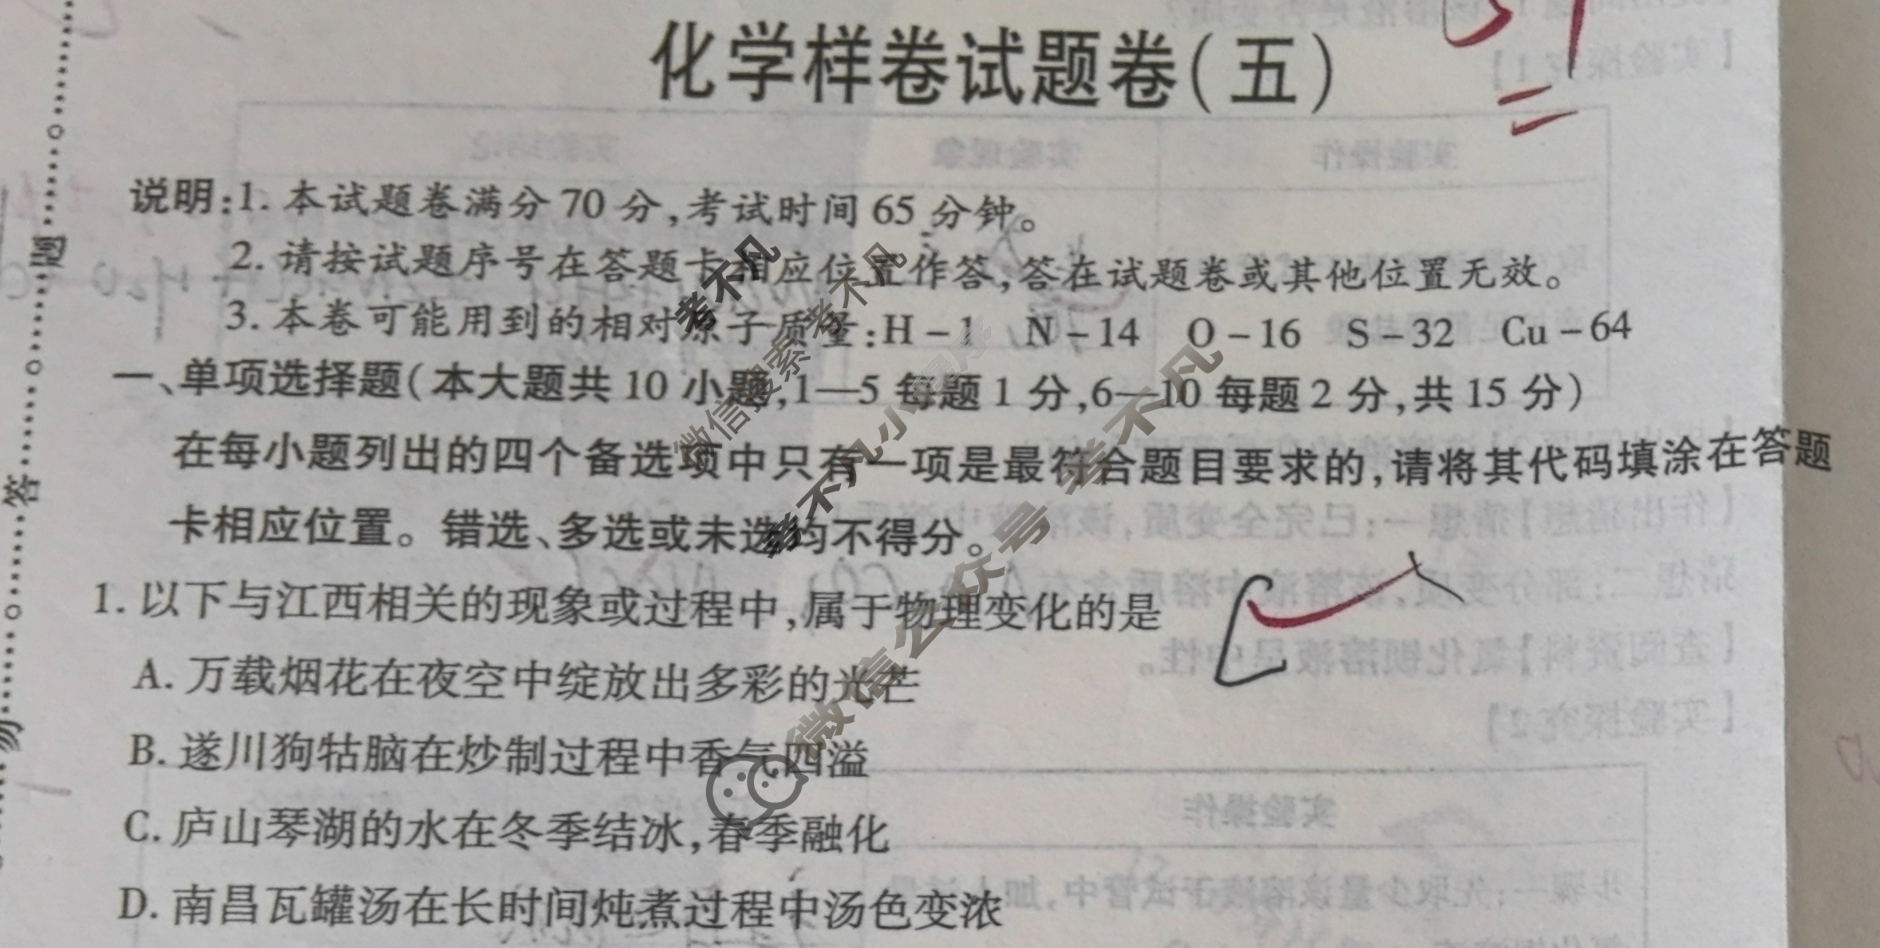 化学样卷试题卷(五)
说明:1. 本试题卷满分 70 分,考试时间 65 分钟。
2. 请按试题序号在答题卡相应位置作答,答在试题卷或其他位置无效。
3. 本卷可能用到的相对原子质量:H-1 N-14 O-16 S-32 Cu-64
一、单项选择题(本大题共 10 小题,1—5 每题 1 分,6—10 每题 2 分,共 15 分)
在每小题列出的四个备选项中只有一项是最符合题目要求的,请将其代码填涂在答题
卡相应位置。错选、多选或未选均不得分。
1. 以下与江西相关的现象或过程中,属于物理变化的是
A. 万载烟花在夜空中绽放出多彩的光芒
B. 遂川狗牯脑在炒制过程中香气四溢
C. 庐山琴湖的水在冬季结冰,春季融化
D. 南昌瓦罐汤在长时间炖煮过程中汤色变浓
题
答
考不凡
微信搜索 考不凡
考不凡小程序
微信公众号 考不凡